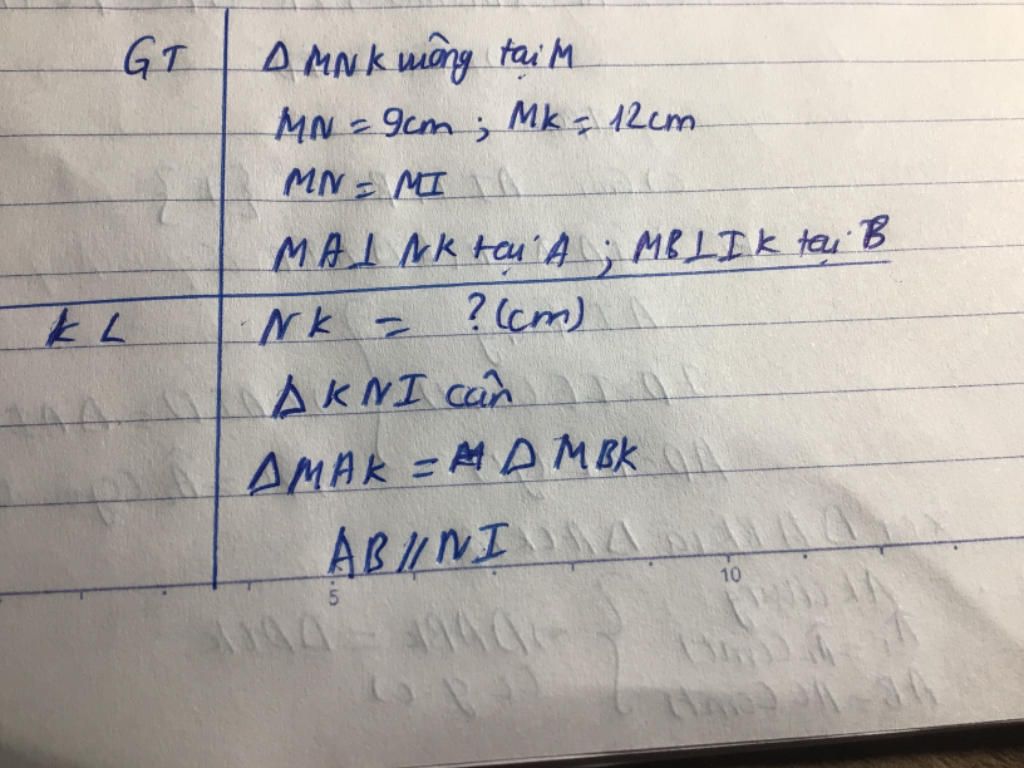 GT Δ MNK vuông tại M
MN = 9cm ; MK = 12cm
MN = MI
MA⊥ NK tại A ; MB⊥IK tại B
KL NK = ? (cm)
Δ KNI cân
ΔMAK = Δ MBK
AB // NI
5 10